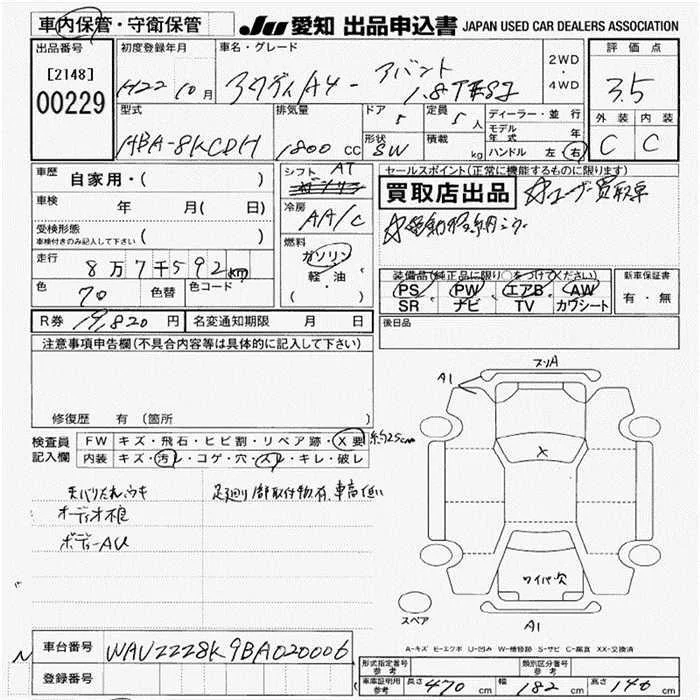 車内保管・守衛保管
JU 愛知 出品申込書 JAPAN USED CAR DEALERS ASSOCIATION
出品番号
[2148]
00229
初度登録年月
H22 10月
車名・グレード
アウディA4 - アバント
1.8T
2WD
・
4WD
評価点
3.5
外装 内装
C C
型式
HBA-8KCDH
排気量
1800 cc
ドア
5
形状
SW
定員
5人
積載
kg
ディーラー・並行
モデル年式 年
ハンドル 左・右
車歴 自家用・( )
車検 年 月( 日)
受検形態
車検付きのみ記入して下さい ( )
走行 8万7千592km
色 70 色替 色コード
R券 19,820円 名変通知期限 月 日
シフト AT
冷房
AA/C
燃料
ガソリン
軽・油
( )
セールスポイント(正常に機能するものに限ります)
買取店出品 ☆ユーザー買取車
装備品(純正品に限り○をつけてください)
PS・PW・エアB・AW
SR ナビ TV カワシート
新車保証書
有・無
後日品
注意事項申告欄(不具合内容等は具体的に記入して下さい)
修復歴 有(箇所 )
検査員
記入欄
FW キズ・飛石・ヒビ割・リペア跡・X要 約25cm
内装 キズ・汚レ・コゲ・穴・スレ・キレ・破レ
天バリたれ、ウキ
オーディオ
足廻り 部取付物有、車高低い
A1
スリA
X
ワイパ欠
スペア
A1
A-キズ E-エクボ U-凹み W-補修跡 S-サビ C-腐食 XX-交換済
車台番号 WAUZZZ8K9BA020006
登録番号
形式指定番号
参考
類別区分番号
参考
車庫証明用
参考
長さ 470cm 幅 182cm 高さ 140cm